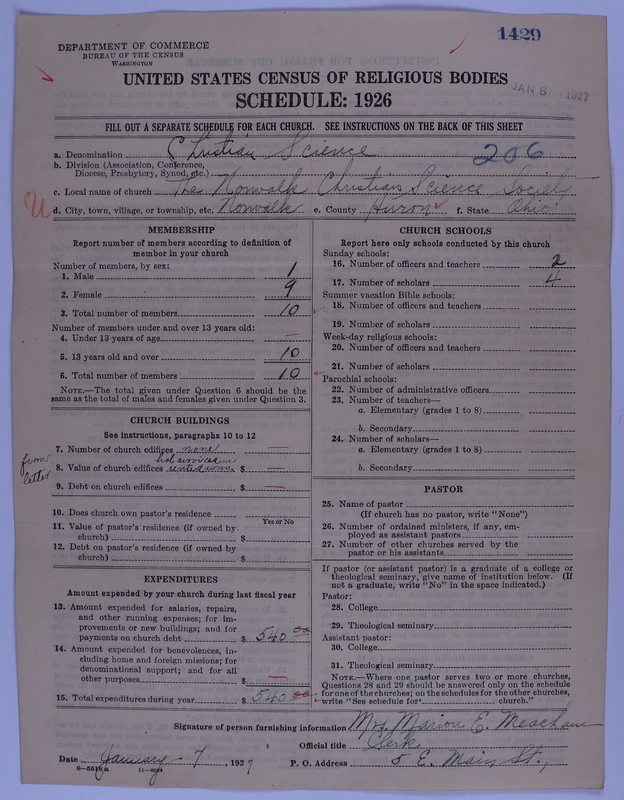 1429
DEPARTMENT OF COMMERCE
BUREAU OF THE CENSUS
WASHINGTON
UNITED STATES CENSUS OF RELIGIOUS BODIES
JAN 8 1927
SCHEDULE: 1926
FILL OUT A SEPARATE SCHEDULE FOR EACH CHURCH. SEE INSTRUCTIONS ON THE BACK OF THIS SHEET
a. Denomination Christian Science
206
b. Division (Association, Conference, Diocese, Presbytery, Synod, etc.)
c. Local name of church The Norwalk Christian Science Society
d. City, town, village, or township, etc. Norwalk e. County Huron f. State Ohio
MEMBERSHIP
Report number of members according to definition of member in your church
Number of members, by sex:
1. Male 1
2. Female 9
3. Total number of members 10
Number of members under and over 13 years old:
4. Under 13 years of age —
5. 13 years old and over 10
6. Total number of members 10
NOTE.—The total given under Question 6 should be the same as the total of males and females given under Question 3.
CHURCH BUILDINGS
See instructions, paragraphs 10 to 12
from letter
7. Number of church edifices none —
hold services in
8. Value of church edifices rented room $ —
9. Debt on church edifices $ —
10. Does church own pastor's residence
Yes or No
11. Value of pastor's residence (if owned by church) $
12. Debt on pastor's residence (if owned by church) $
EXPENDITURES
Amount expended by your church during last fiscal year
13. Amount expended for salaries, repairs, and other running expenses; for improvements or new buildings; and for payments on church debt $ 540 00
14. Amount expended for benevolences, including home and foreign missions; for denominational support; and for all other purposes $ —
15. Total expenditures during year $ 540 00
CHURCH SCHOOLS
Report here only schools conducted by this church
Sunday schools:
16. Number of officers and teachers 2
17. Number of scholars 4
Summer vacation Bible schools:
18. Number of officers and teachers
19. Number of scholars
Week-day religious schools:
20. Number of officers and teachers
21. Number of scholars
Parochial schools:
22. Number of administrative officers
23. Number of teachers—
a. Elementary (grades 1 to 8)
b. Secondary
24. Number of scholars—
a. Elementary (grades 1 to 8)
b. Secondary
PASTOR
25. Name of pastor
(If church has no pastor, write "None")
26. Number of ordained ministers, if any, employed as assistant pastors
27. Number of other churches served by the pastor or his assistants
If pastor (or assistant pastor) is a graduate of a college or theological seminary, give name of institution below. (If not a graduate, write "No" in the space indicated.)
Pastor:
28. College
29. Theological seminary
Assistant pastor:
30. College
31. Theological seminary
NOTE.—Where one pastor serves two or more churches, Questions 28 and 29 should be answered only on the schedule for one of the churches; on the schedules for the other churches, write "See schedule for church."
Signature of person furnishing information Mrs. Marion E. Meacham
Official title Clerk
Date January 7, 1927 P. O. Address 5 E. Main St.,
8—5518a 11—9224